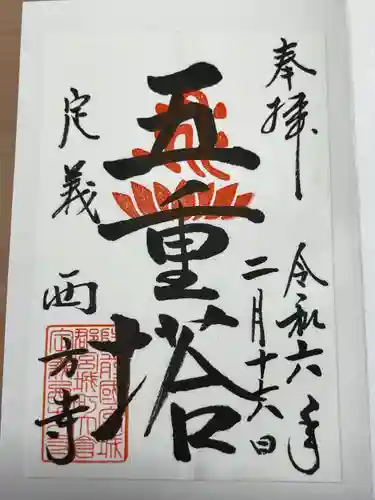 奉拝
令和六年
二月十六日
五重塔
定義
西方寺